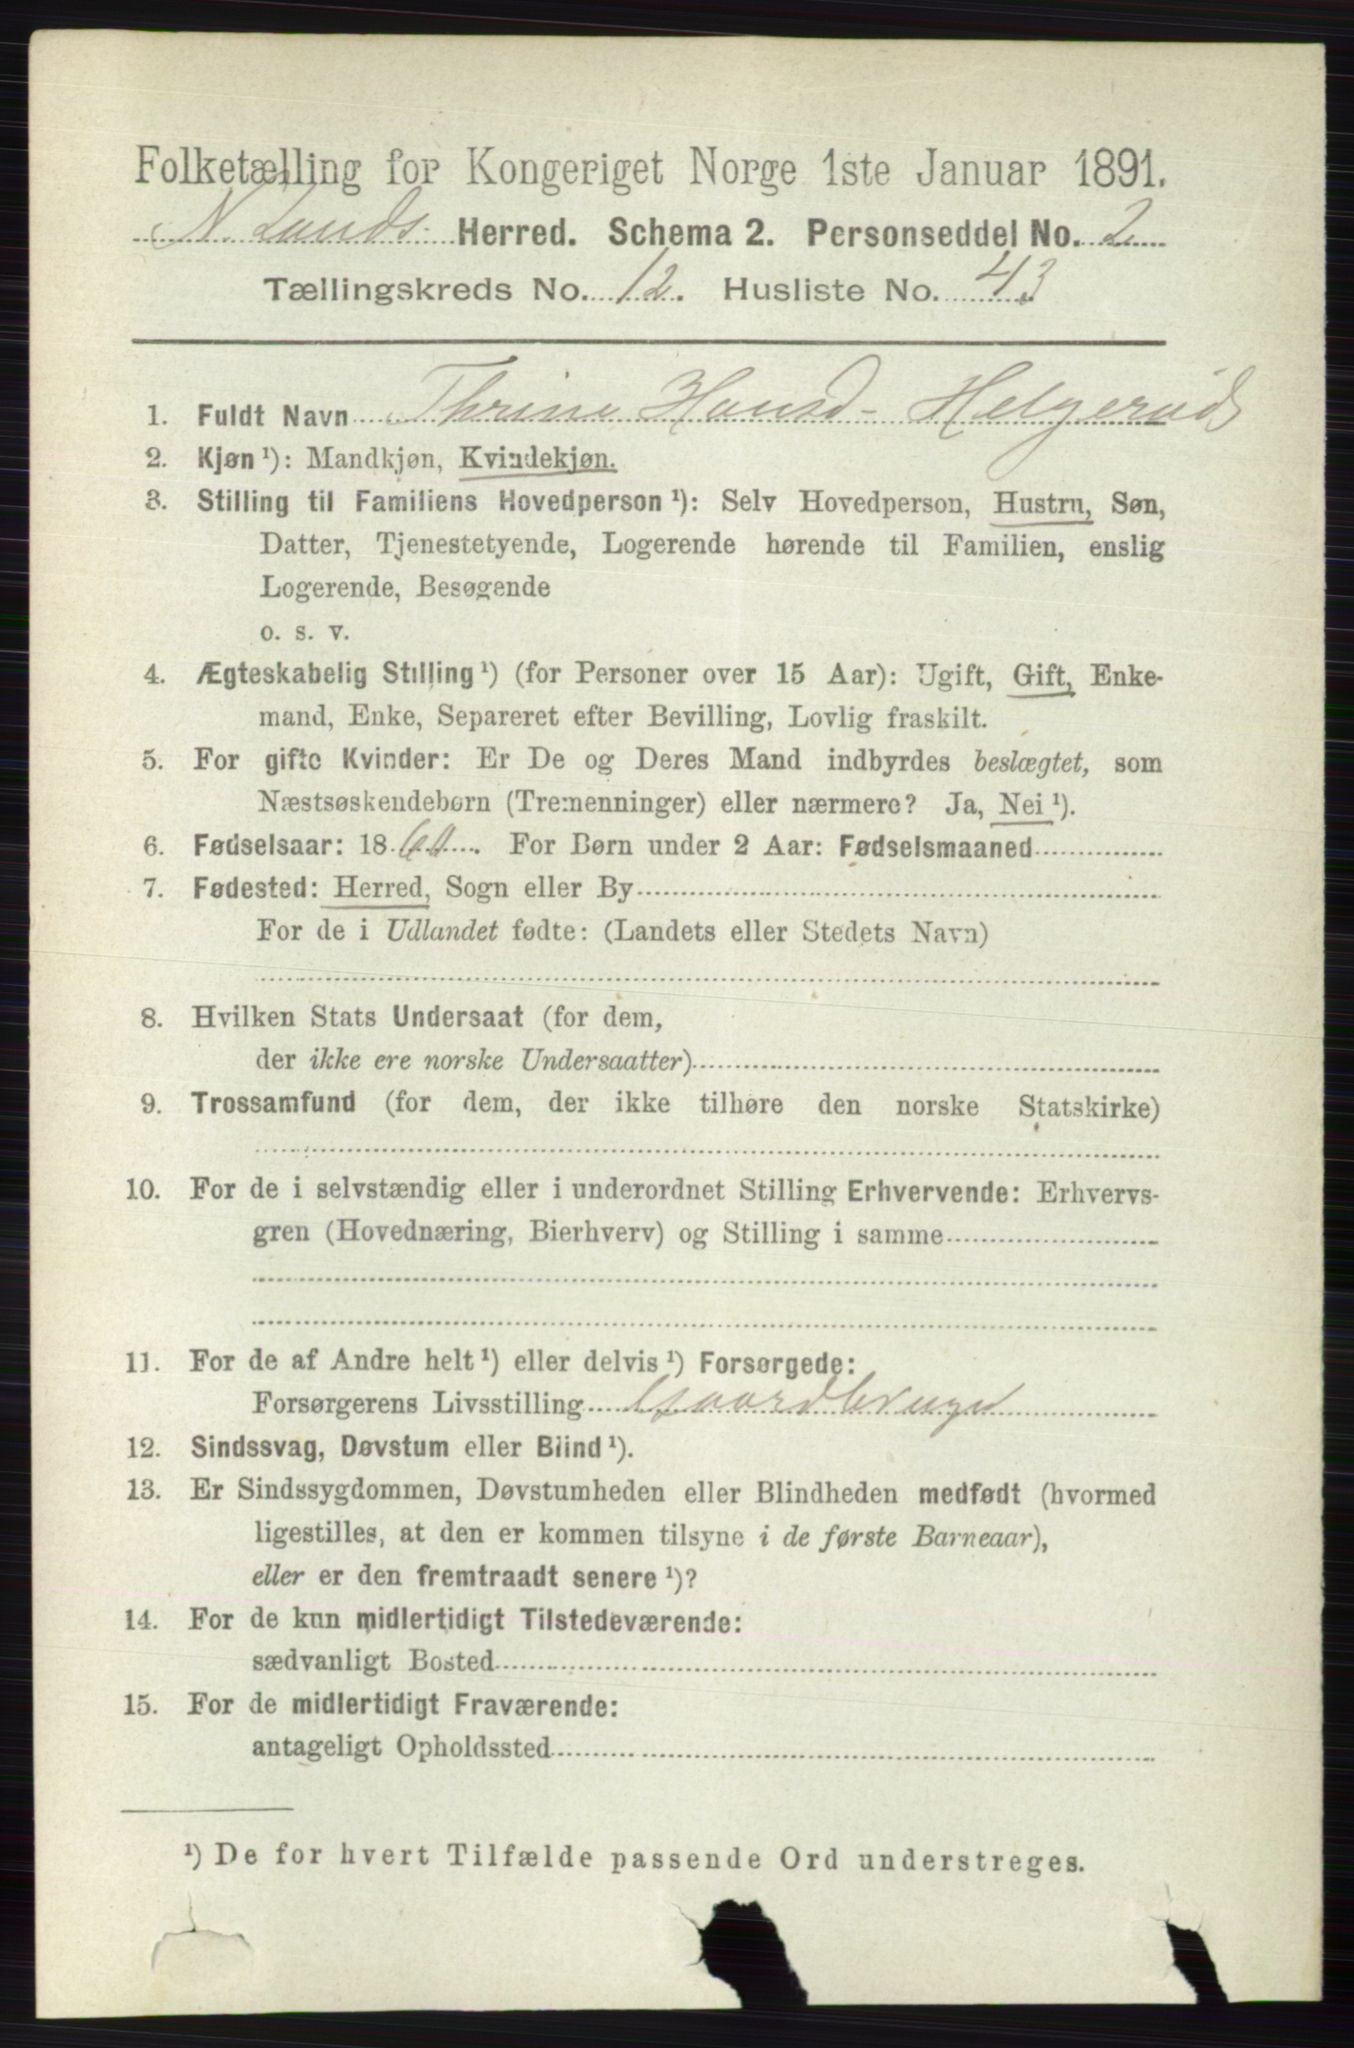 Folketælling for Kongeriget Norge 1ste Januar 1891.
N. Lands Herred. Schema 2. Personseddel No. 2
Tællingskreds No. 12. Husliste No. 43
1. Fuldt Navn Thrine Hansd- Helgerud
2. Kjøn ¹): Mandkjøn, Kvindekjøn.
3. Stilling til Familiens Hovedperson ¹): Selv Hovedperson, Hustru, Søn,
Datter, Tjenestetyende, Logerende hørende til Familien, enslig
Logerende, Besøgende
o. s. v.
4. Ægteskabelig Stilling ¹) (for Personer over 15 Aar): Ugift, Gift, Enke-
mand, Enke, Separeret efter Bevilling, Lovlig fraskilt.
5. For gifte Kvinder: Er De og Deres Mand indbyrdes beslægtet, som
Næstsøskendebørn (Tremenninger) eller nærmere? Ja, Nei ¹).
6. Fødselsaar: 1860. For Børn under 2 Aar: Fødselsmaaned
7. Fødested: Herred, Sogn eller By
For de i Udlandet fødte: (Landets eller Stedets Navn)
8. Hvilken Stats Undersaat (for dem,
der ikke ere norske Undersaatter)
9. Trossamfund (for dem, der ikke tilhøre den norske Statskirke)
10. For de i selvstændig eller i underordnet Stilling Erhvervende: Erhvervs-
gren (Hovednæring, Bierhverv) og Stilling i samme
11. For de af Andre helt ¹) eller delvis ¹) Forsørgede:
Forsørgerens Livsstilling Gaardbruger
12. Sindssvag, Døvstum eller Blind ¹).
13. Er Sindssygdommen, Døvstumheden eller Blindheden medfødt (hvormed
ligestilles, at den er kommen tilsyne i de første Barneaar),
eller er den fremtraadt senere ¹)?
14. For de kun midlertidigt Tilstedeværende:
sædvanligt Bosted
15. For de midlertidigt Fraværende:
antageligt Opholdssted
¹) De for hvert Tilfælde passende Ord understreges.